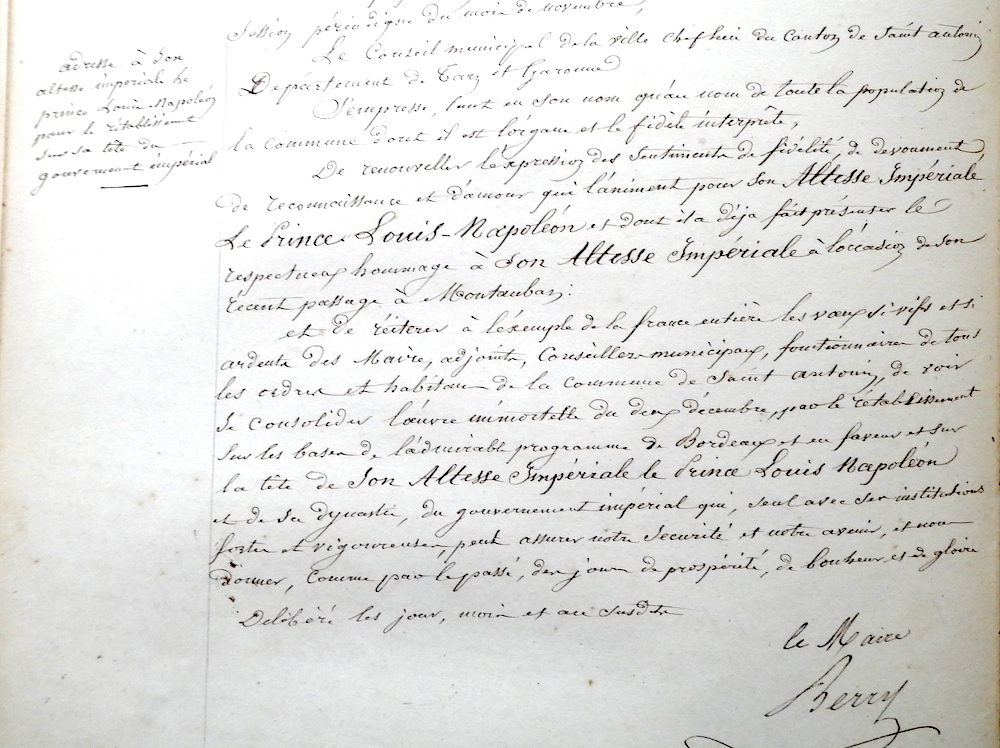 Session périodique du mois de novembre,
adresse à Son
altesse impériale le
prince Louis-Napoléon
pour le rétablissement
sur sa tête du
gouvernement impérial
Le Conseil municipal de la ville chef lieu du Canton de Saint antonin
Département de Tarn et Garonne
S'empresse, tant en son nom qu'au nom de toute la population de
la commune dont il est l'organe et le fidèle interprête,
De renouveller l'expression des Sentiments de fidélité, de devoument,
de reconnaissance et d'amour qui l'animent pour Son Altesse Impériale
Le Prince Louis-Napoléon et dont il a déja fait présenter le
respectueux hommage à Son Altesse Impériale à l'occasion de son
récent passage à Montauban:
et de réiterer à l'exemple de la france entière les vœux si vifs et si
ardents des Maire, adjoints, Conseillers municipaux, fonctionnaires de tous
les ordres et habitans de la commune de Saint antonin, de voir
se consolider l'œuvre immortelle du deux décembre, par le rétablissement
sur les bases de l'admirable programme de Bordeaux et en faveur et sur
la tête de Son Altesse Impériale le Prince Louis Napoléon
et de sa dynastie, du gouvernement impérial qui, seul avec ses institutions
fortes et vigoureuses, peut assurer notre Sécurité et notre avenir, et nous
donner, comme par le passé, des jours de prospérité, de bonheur et de gloire
Délibéré les jour, mois et an susdits
le Maire
Berry